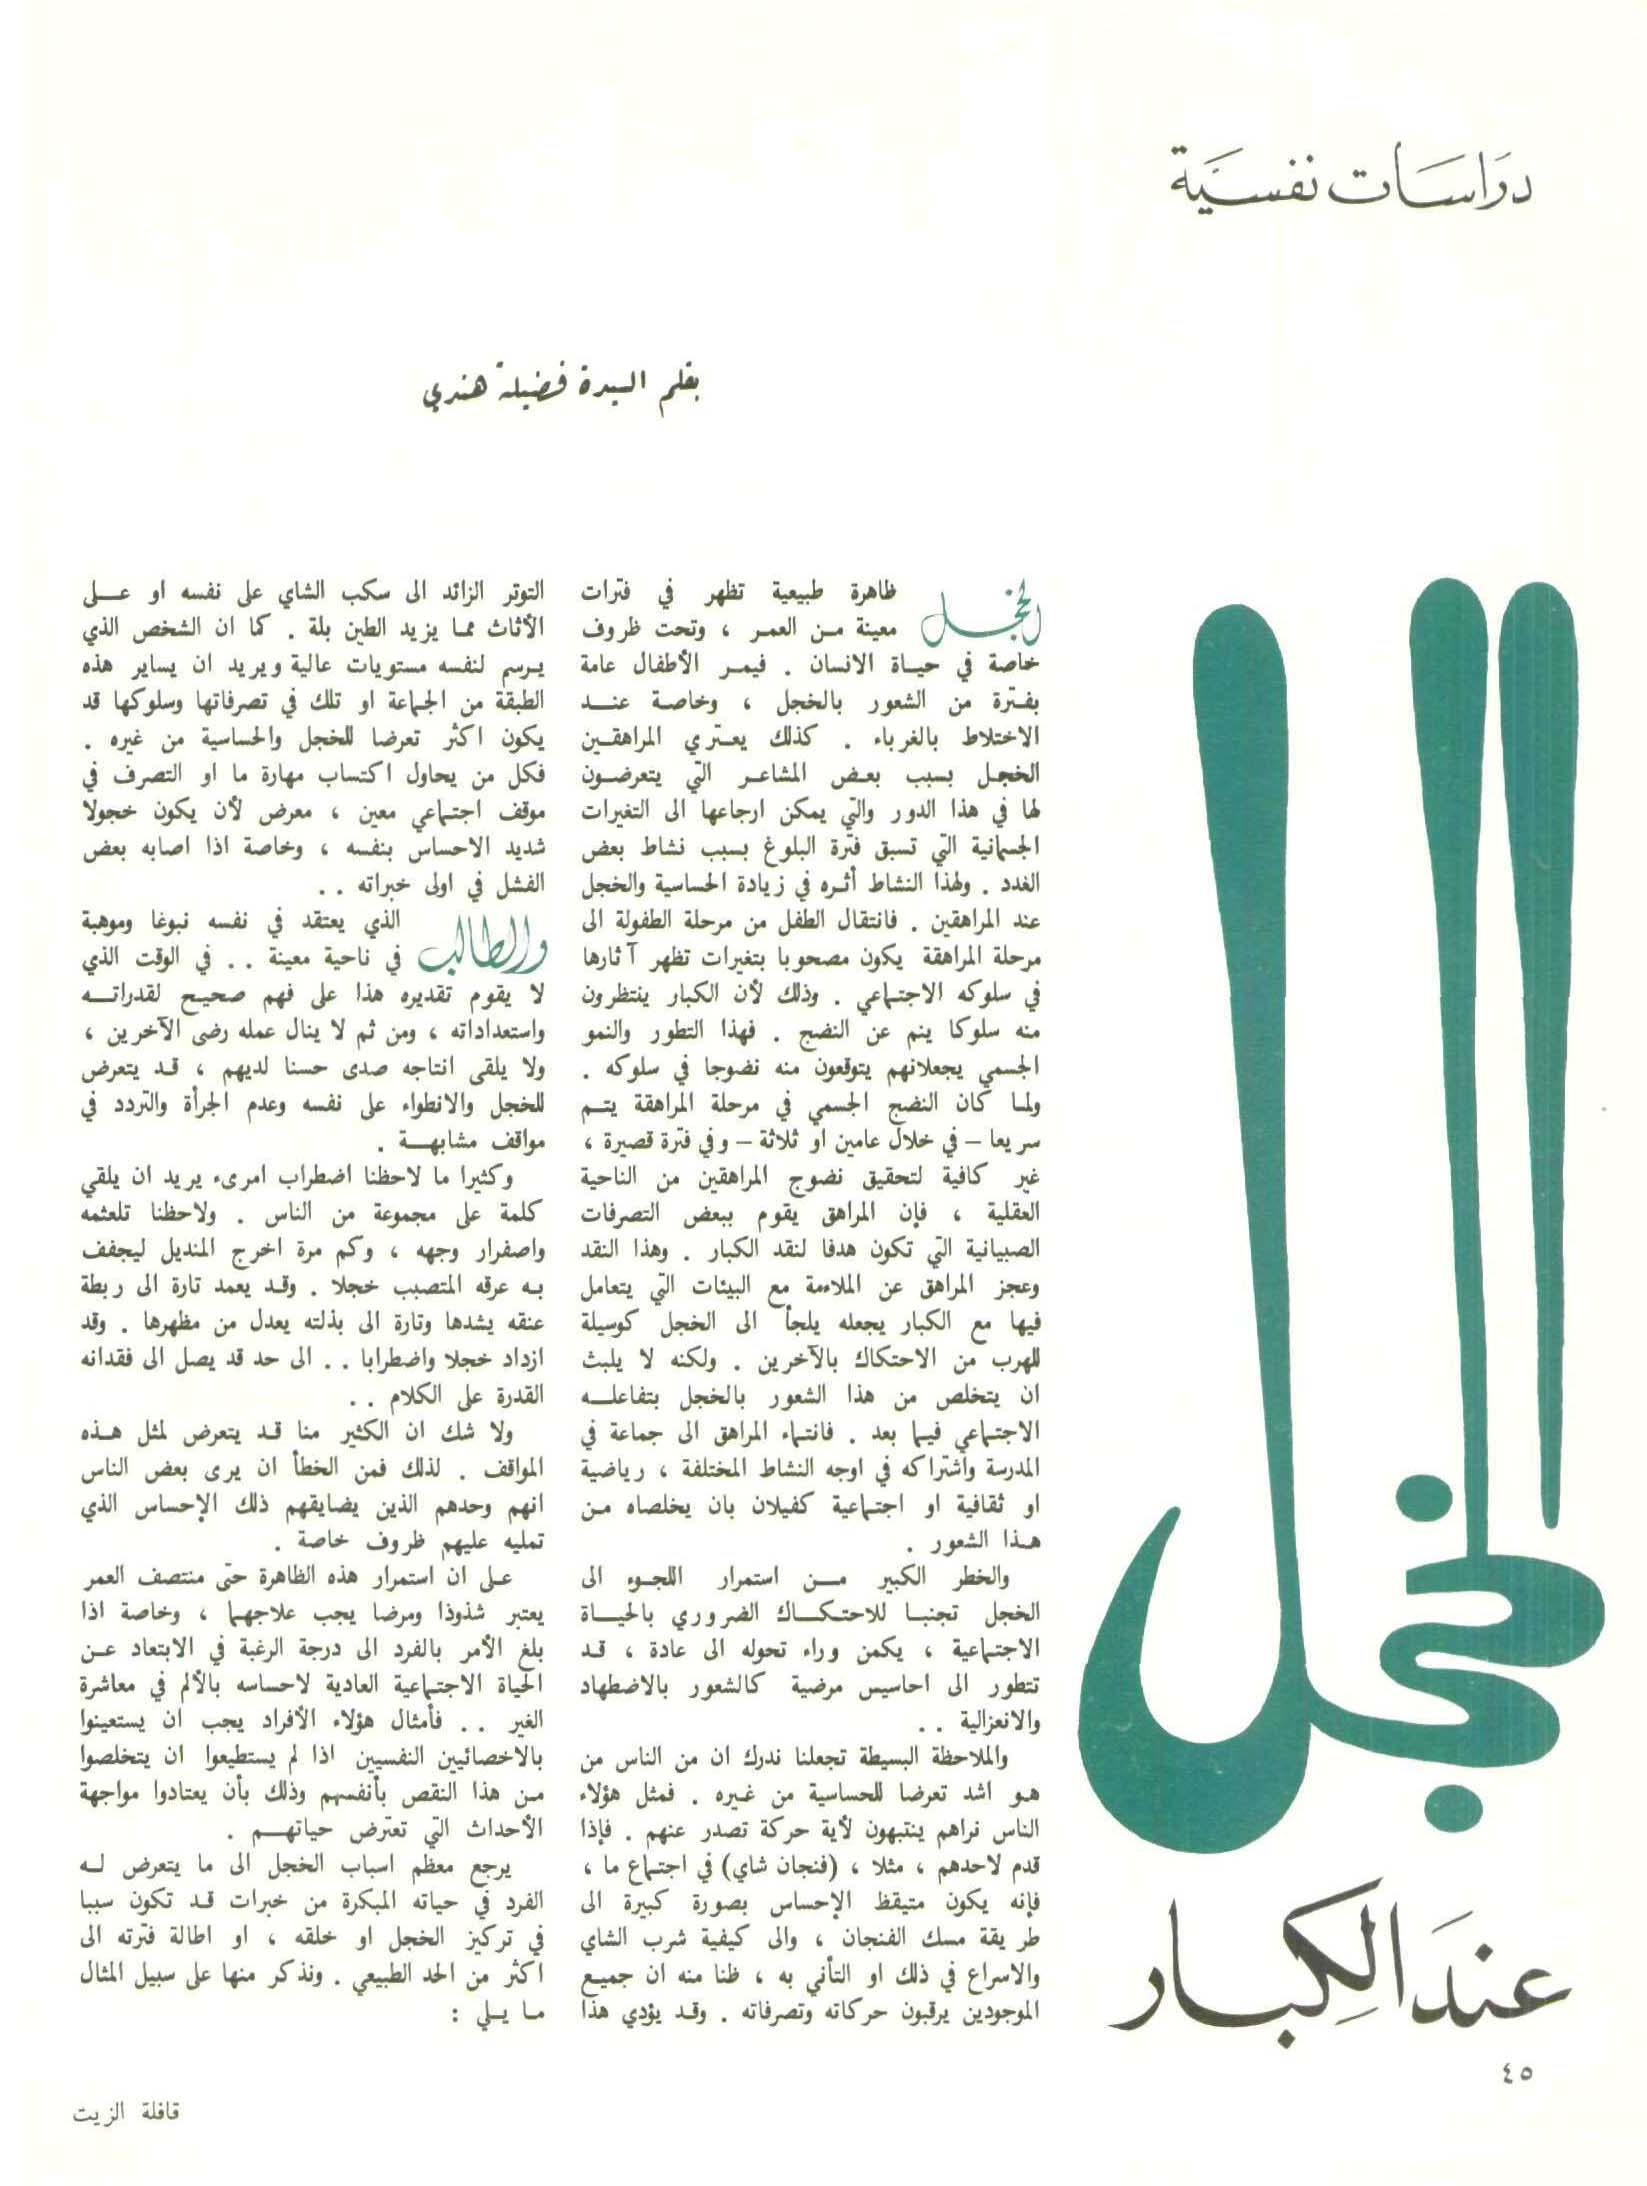 دراسات نفسية
الخجل
عند الكبار
بقلم السيدة فضيلة هندي
الخجل ظاهرة طبيعية تظهر في فترات
معينة من العمر ، وتحت ظروف
خاصة في حياة الانسان . فيمر الأطفال عامة
بفترة من الشعور بالخجل ، وخاصة عند
الاختلاط بالغرباء . كذلك يعتري المراهقين
الخجل بسبب بعض المشاعر التي يتعرضون
لها في هذا الدور والتي يمكن ارجاعها الى التغيرات
الجسمانية التي تسبق فترة البلوغ بسبب نشاط بعض
الغدد . ولهذا النشاط أثره في زيادة الحساسية والخجل
عند المراهقين . فانتقال الطفل من مرحلة الطفولة الى
مرحلة المراهقة يكون مصحوبا بتغيرات تظهر آثارها
في سلوكه الاجتماعي . وذلك لأن الكبار ينتظرون
منه سلوكا ينم عن النضج . فهذا التطور والنمو
الجسمي يجعلانهم يتوقعون منه نضوجا في سلوكه .
ولما كان النضج الجسمي في مرحلة المراهقة يتم
سريعا – في خلال عامين او ثلاثة – وفي فترة قصيرة ،
غير كافية لتحقيق نضوج المراهقين من الناحية
العقلية ، فإن المراهق يقوم ببعض التصرفات
الصبيانية التي تكون هدفا لنقد الكبار . وهذا النقد
وعجز المراهق عن الملاءمة مع البيئات التي يتعامل
فيها مع الكبار يجعله يلجأ الى الخجل كوسيلة
للهرب من الاحتكاك بالآخرين . ولكنه لا يلبث
ان يتخلص من هذا الشعور بالخجل بتفاعله
الاجتماعي فيما بعد . فانتماء المراهق الى جماعة في
المدرسة واشتراكه في اوجه النشاط المختلفة ، رياضية
او ثقافية او اجتماعية كفيلان بان يخلصاه من
هذا الشعور .
والخطر الكبير من استمرار اللجوء الى
الخجل تجنبا للاحتكاك الضروري بالحياة
الاجتماعية ، يكمن وراء تحوله الى عادة ، قد
تتطور الى احاسيس مرضية كالشعور بالاضطهاد
والانعزالية . .
والملاحظة البسيطة تجعلنا ندرك ان من الناس من
هو اشد تعرضا للحساسية من غيره . فمثل هؤلاء
الناس نراهم ينتبهون لأية حركة تصدر عنهم . فإذا
قدم لاحدهم ، مثلا ، (فنجان شاي) في اجتماع ما ،
فإنه يكون متيقظ الإحساس بصورة كبيرة الى
طريقة مسك الفنجان ، والى كيفية شرب الشاي
والاسراع في ذلك او التأني به ، ظنا منه ان جميع
الموجودين يرقبون حركاته وتصرفاته . وقد يؤدي هذا
التوتر الزائد الى سكب الشاي على نفسه او على
الأثاث مما يزيد الطين بلة . كما ان الشخص الذي
يرسم لنفسه مستويات عالية ويريد ان يساير هذه
الطبقة من الجماعة او تلك في تصرفاتها وسلوكها قد
يكون اكثر تعرضا للخجل والحساسية من غيره .
فكل من يحاول اكتساب مهارة ما او التصرف في
موقف اجتماعي معين ، معرض لأن يكون خجولا
شديد الاحساس بنفسه ، وخاصة اذا اصابه بعض
الفشل في اولى خبراته . .
والطالب الذي يعتقد في نفسه نبوغا وموهبة
في ناحية معينة . . في الوقت الذي
لا يقوم تقديره هذا على فهم صحيح لقدراته
واستعداداته ، ومن ثم لا ينال عمله رضى الآخرين ،
ولا يلقى انتاجه صدى حسنا لديهم ، قد يتعرض
للخجل والانطواء على نفسه وعدم الجرأة والتردد في
مواقف مشابهة .
وكثيرا ما لاحظنا اضطراب امرىء يريد ان يلقي
كلمة على مجموعة من الناس . ولاحظنا تلعثمه
واصفرار وجهه ، وكم مرة اخرج المنديل ليجفف
به عرقه المتصبب خجلا . وقد يعمد تارة الى ربطة
عنقه يشدها وتارة الى بذلته يعدل من مظهرها . وقد
ازداد خجلا واضطرابا . . الى حد قد يصل الى فقدانه
القدرة على الكلام . .
ولا شك ان الكثير منا قد يتعرض لمثل هذه
المواقف . لذلك فمن الخطأ ان يرى بعض الناس
انهم وحدهم الذين يضايقهم ذلك الإحساس الذي
تمليه عليهم ظروف خاصة .
على ان استمرار هذه الظاهرة حتى منتصف العمر
يعتبر شذوذا ومرضا يجب علاجهما ، وخاصة اذا
بلغ الأمر بالفرد الى درجة الرغبة في الابتعاد عن
الحياة الاجتماعية العادية لاحساسه بالألم في معاشرة
الغير . . فأمثال هؤلاء الأفراد يجب ان يستعينوا
بالاخصائيين النفسيين اذا لم يستطيعوا ان يتخلصوا
من هذا النقص بأنفسهم وذلك بأن يعتادوا مواجهة
الأحداث التي تعترض حياتهم .
يرجع معظم اسباب الخجل الى ما يتعرض له
الفرد في حياته المبكرة من خبرات قد تكون سببا
في تركيز الخجل او خلقه ، او اطالة فترته الى
اكثر من الحد الطبيعي . ونذكر منها على سبيل المثال
ما يلي :
٤٥
قافلة الزيت